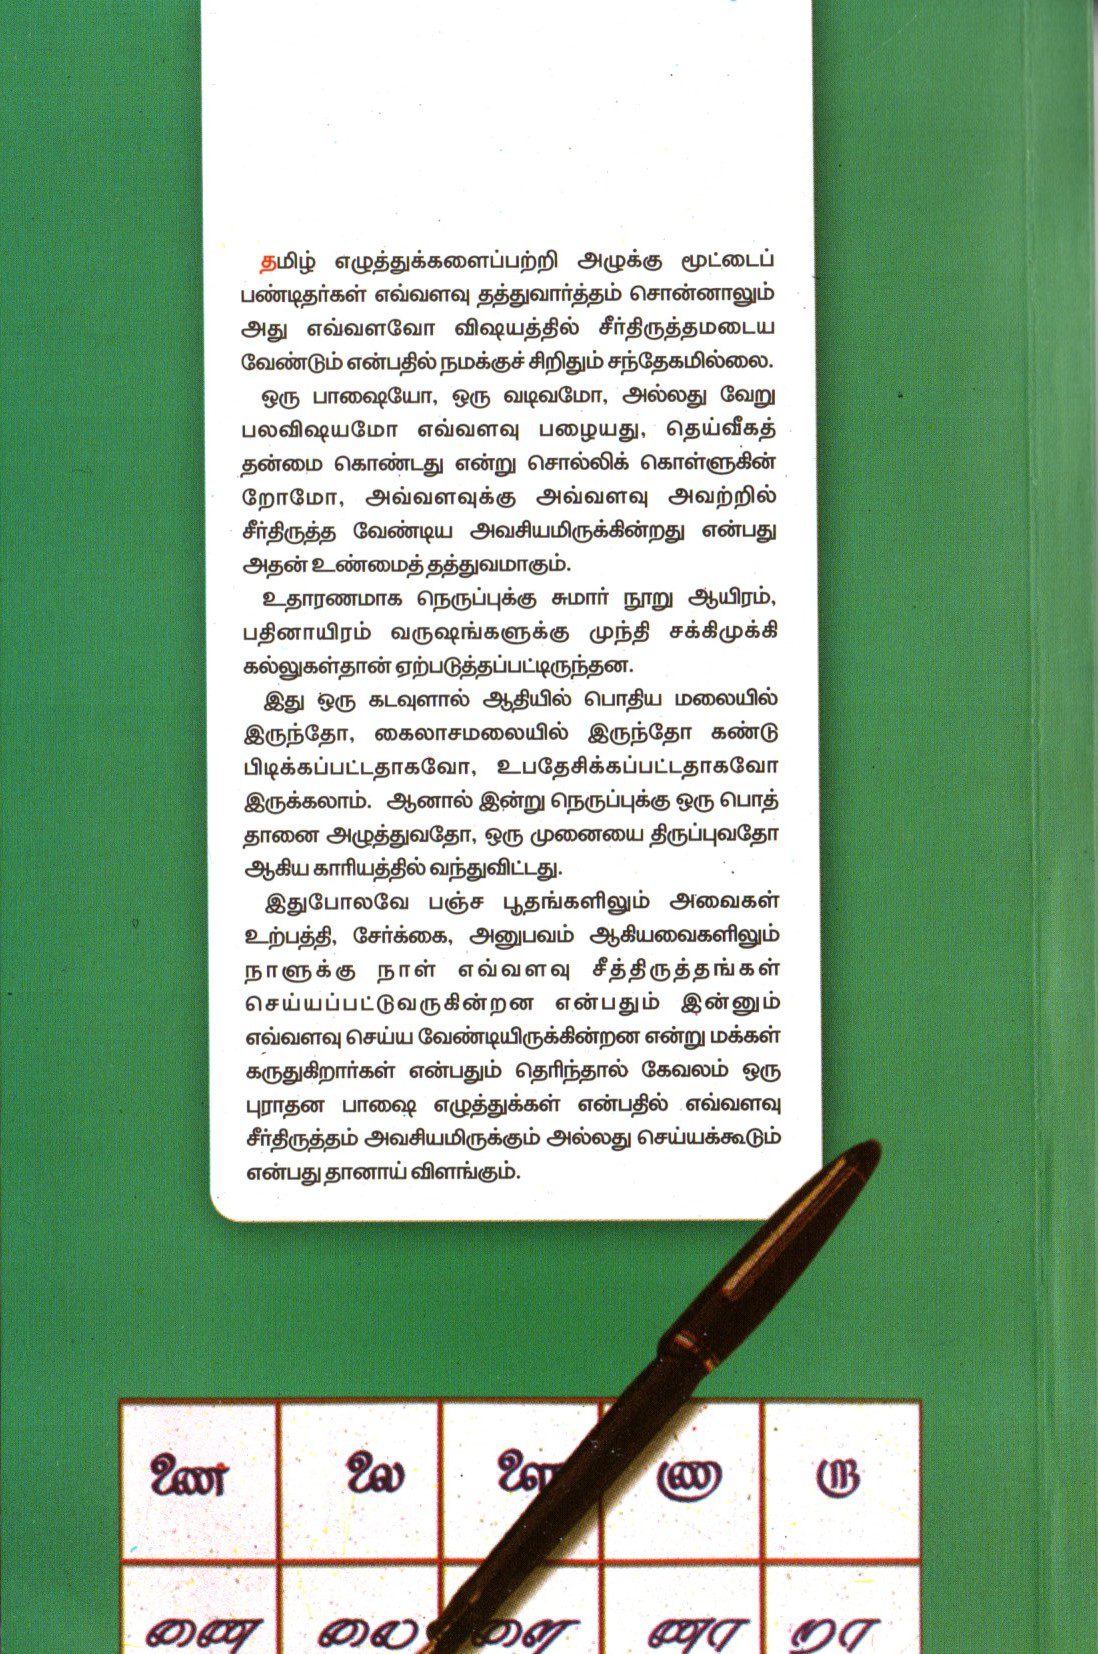 தமிழ் எழுத்துக்களைப்பற்றி அழுக்கு மூட்டைப்
பண்டிதர்கள் எவ்வளவு தத்துவார்த்தம் சொன்னாலும்
அது எவ்வளவோ விஷயத்தில் சீர்திருத்தமடைய
வேண்டும் என்பதில் நமக்குச் சிறிதும் சந்தேகமில்லை.
ஒரு பாஷையோ, ஒரு வடிவமோ, அல்லது வேறு
பலவிஷயமோ எவ்வளவு பழையது, தெய்வீகத்
தன்மை கொண்டது என்று சொல்லிக் கொள்ளுகின்
றோமோ, அவ்வளவுக்கு அவ்வளவு அவற்றில்
சீர்திருத்த வேண்டிய அவசியமிருக்கின்றது என்பது
அதன் உண்மைத் தத்துவமாகும்.
உதாரணமாக நெருப்புக்கு சுமார் நூறு ஆயிரம்,
பதினாயிரம் வருஷங்களுக்கு முந்தி சக்கிமுக்கி
கல்லுகள்தான் ஏற்படுத்தப்பட்டிருந்தன.
இது ஒரு கடவுளால் ஆதியில் பொதிய மலையில்
இருந்தோ, கைலாசமலையில் இருந்தோ கண்டு
பிடிக்கப்பட்டதாகவோ, உபதேசிக்கப்பட்டதாகவோ
இருக்கலாம். ஆனால் இன்று நெருப்புக்கு ஒரு பொத்
தானை அழுத்துவதோ, ஒரு முனையை திருப்புவதோ
ஆகிய காரியத்தில் வந்துவிட்டது.
இதுபோலவே பஞ்ச பூதங்களிலும் அவைகள்
உற்பத்தி, சேர்க்கை, அனுபவம் ஆகியவைகளிலும்
நாளுக்கு நாள் எவ்வளவு சீத்திருத்தங்கள்
செய்யப்பட்டுவருகின்றன என்பதும் இன்னும்
எவ்வளவு செய்ய வேண்டியிருக்கின்றன என்று மக்கள்
கருதுகிறார்கள் என்பதும் தெரிந்தால் கேவலம் ஒரு
புராதன பாஷை எழுத்துக்கள் என்பதில் எவ்வளவு
சீர்திருத்தம் அவசியமிருக்கும் அல்லது செய்யக்கூடும்
என்பது தானாய் விளங்கும்.
ணை லை ளை ணா றா
ணை லை ளை ணா றா